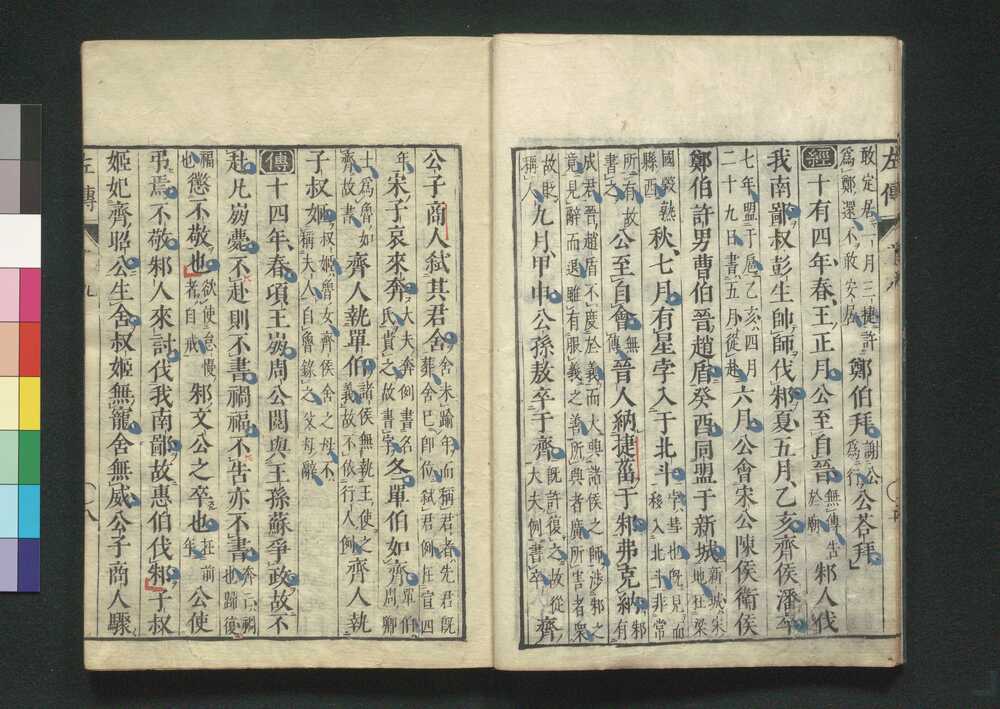 敢定居一月三捷許
為鄭還不敢安居
鄭伯拜
謝公
為行
公荅拜
經十有四年春王正月公至自晉
無傳告
於廟
邾人伐
我南鄙叔彭生帥師伐邾夏五月乙亥齊侯潘卒
七年盟于扈乙亥四月
二十九日書五月從赴
六月公會宋公陳侯衛侯
鄭伯許男曹伯晉趙盾癸酉同盟于新城
新城宋
地在梁
國穀熟
縣西
秋七月有星孛入于北斗
孛彗也既見而
移入北斗非常
所有故
書之
公至自會
無
傳
晉人納捷菑于邾弗克納
邾
有
成君晉趙盾不慶於義而大興諸侯之師涉邾之
竟見辭而退雖有服義之善所興者廣所害者衆
故貶
稱人
九月甲申公孫敖卒于齊
既許復之故從
大夫例書卒
齊
左傳
公子商人弑其君舍
舍未踰年而稱君者先君既
葬舍已即位弑君例在宣四
年
宋子哀來奔
大夫奔例書名
氏貴之故書字
冬單伯如齊
單伯
周卿
士為魯如
齊故書
齊人執單伯
諸侯無執王使之
義故不依行人例
齊人執
子叔姬
叔姬魯女齊侯舍之母不
稱夫人自魯錄之父母辭
傳十四年春頃王崩周公閱與王孫蘇爭政故不
赴凡崩薨不赴則不書禍福不告亦不書
奔亡禍
也歸復
福
也
懲不敬也
欲使怠慢
者自戒
邾文公之卒也
在前
年
公使
弔焉不敬邾人來討伐我南鄙故惠伯伐邾子叔
姬妃齊昭公生舍叔姬無寵舍無威公子商人驟
左傳
九
八